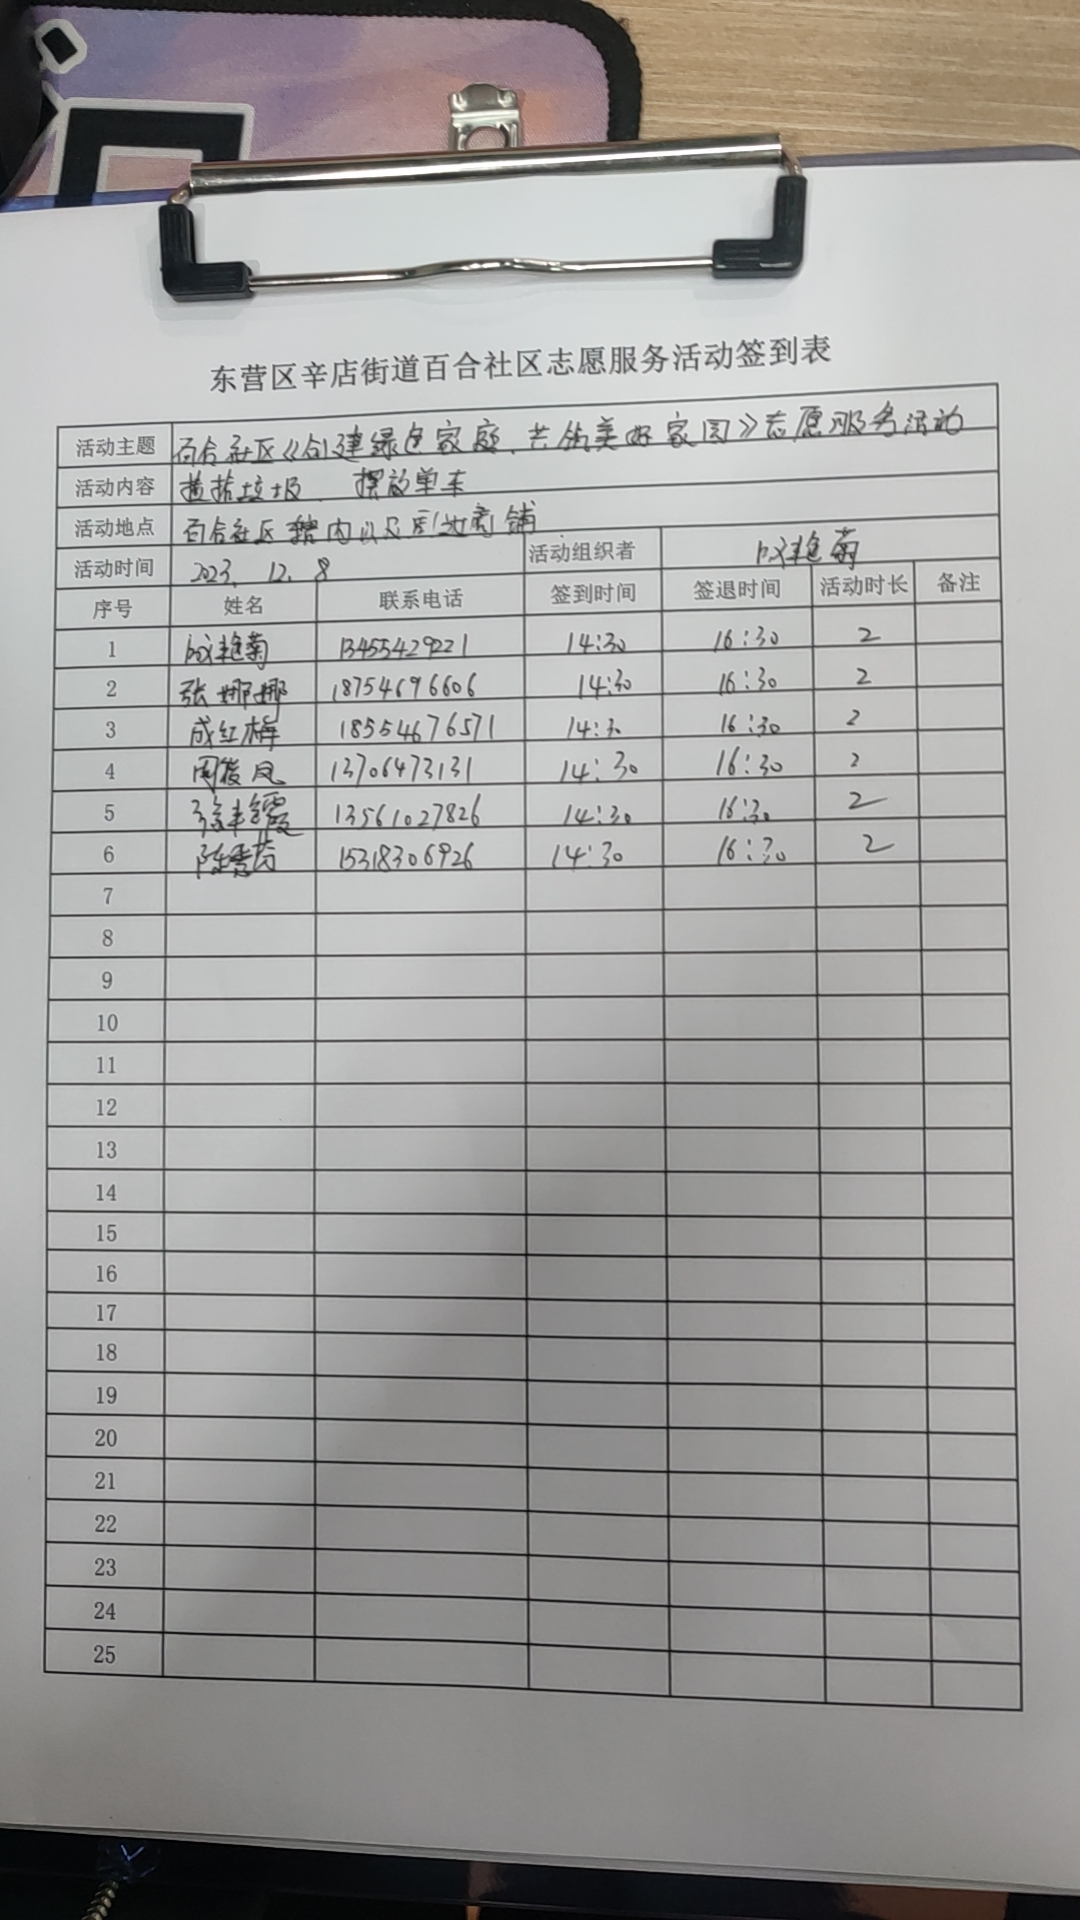 东营区辛店街道百合社区志愿服务活动签到表
活动主题 百合社区《创建绿色家庭、共筑美好家园》志愿服务活动
活动内容 捡拾垃圾、摆放单车
活动地点 百合社区辖内以及周边商铺
活动时间 2023.12.8 活动组织者 艳菊
序号 姓名 联系电话 签到时间 签退时间 活动时长 备注
1 艳菊 13455429221 14:30 16:30 2
2 张娜娜 18754696606 14:30 16:30 2
3 成红梅 18554676571 14:30 16:30 2
4 周俊凤 13706473131 14:30 16:30 2
5 霞 13561027826 14:30 16:30 2
6 陈秀芳 15318306926 14:30 16:30 2
7
8
9
10
11
12
13
14
15
16
17
18
19
20
21
22
23
24
25